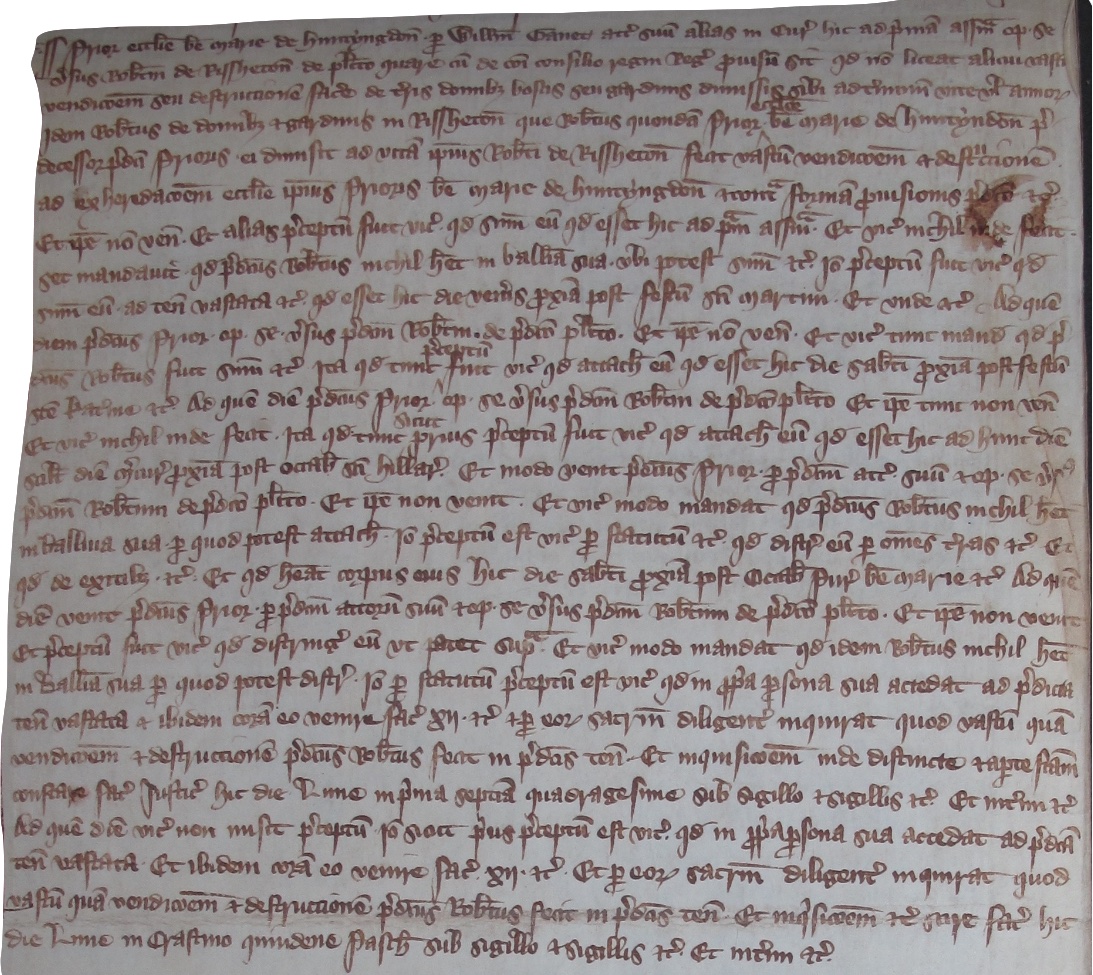 Prior eccl'ie b'e marie de huntyngdon' p' Will'm Ganet att' suu' alias in Cur' hic ad p'mam ass'am op' se
v'sus Rob'tm de Rissheton' de pl'ito quare cu' de co'i consilio regni Reg' p'uisu' sit q'd no' liceat alicui vastu'
vendic'oem seu destructione' fac'e de t'ris domib3 boscis seu gardinis dimissis sibi ad t'minu' vite v'l annor'
Idem Rob'tus de domib3 & gardinis in Rissheton' que Rob'tus quonda' Prior eccl'ie b'e marie de huntyndon' p'
decessor p'd'c'i Prioris ei dimisit ad vita' ip'ius Rob'ti de Rissheton' fecit vastu' vendic'oem & destructione'
ad exheredac'oem eccl'ie ip'ius Prioris b'e marie de huntyngdon' & cont'a forma' p'uisionis p'd'c'e &c'
Et ip'e no' ven'. Et alias p'ceptu' fuit vic' q'd sum' eu' q'd esset hic ad p'am ass'am. Et vic' nichil inde fecit.
set mandauit q'd p'd'c'us Rob'tus nichil h'et in ball'ia sua vbi potest sum' &c' Io' p'ceptu' fuit vic' q'd
sum' eu' ad ten' vastata &c' q'd esset hic die ven'is p'xi'a post festu' s'c'i martini. Et vnde &c' Ad que'
diem p'd'c'us Prior op' se v'sus p'd'c'm Rob'tm de p'd'c'o pl'ito. Et ip'e no' ven'. Et vic' tunc mand' q'd p'
d'c'us Rob'tus fuit sum' &c' Ita q'd tunc p'ceptu' fuit vic' q'd attach' eu' q'd esset hic die sab'ti p'xi'a post festu'
s'c'e kat'ine &c' Ad que' die' p'd'c'us Prior op' se v'sus p'd'c'm Rob'tm de p'd'c'o pl'ito Et ip'e tunc non ven'
Et vic' nichil inde fecit. Ita q'd tunc sicut prius p'ceptu' fuit vic' q'd attach' eu' q'd esset hic ad hunc die'
scil't die' m'cur' p'xi'a post octab' s'c'i hillar'. Et modo venit p'd'c'us Prior p' p'd'c'm att' suu' & op' se v'sus
p'd'c'm Rob'tum de p'd'c'o pl'ito. Et ip'e non venit. Et vic' modo mandat q'd p'd'c'us Rob'tus nichil h'et
in balliua sua p' quod potest attach'. Io' p'ceptu' est vic' p' statutu' &c' q'd distr' eu' p' om'es t'ras &c' Et
q'd de exitib3 &c' Et q'd h'eat corpus eius hic die sab'ti p'xi'a post Octab' Pur' b'e marie &c' Ad que'
die' venit p'd'c'us Prior p' p'd'c'm attorn' suu' & op' se v'sus p'd'c'm Rob'tum de p'd'c'o pl'ito. Et ip'e non venit
Et p'ceptu' fuit vic' q'd distring' eu' vt patet sup'a. Et vic' modo mandat q'd idem Rob'tus nichil h'et
in ball'ia sua p' quod potest distr'. Io' p' statutu' p'ceptu' est vic' q'd in p'p'a p'sona sua accedat ad p'dicta
ten' vastata & ibidem cora' eo venire fac' xii &c' & p' eor' sacr'm diligent' inquirat quod vastu' qua'
vendic'oem & destructione' p'd'c'us Rob'tus fecit in p'd'c'is ten'. Et inquisic'oem inde distincte & aperte f'cam
constare fac' Justic' hic die Lune in p'ma septi'a quadragesime sub sigillo & sigillis &c' Et int'im &c'
Ad que' die' vic' non misit p'ceptu' Io' sicut p'us p'ceptu' est vic' q'd in p'p'a p'sona sua accedat ad p'd'c'a
ten' vastata. Et ibidem cora' eo venire fac' xii &c'. Et p' eor' sacr'm diligent' inquirat quod
vastu' qua' vendic'oem & destructione' p'd'c'us Rob'tus fecit in p'd'c'is ten'. Et inq'isic'oem &c' scire fac' hic
die Lune in Crastino quindene Pasch' sub sigillo & sigillis &c' Et int'im &c'